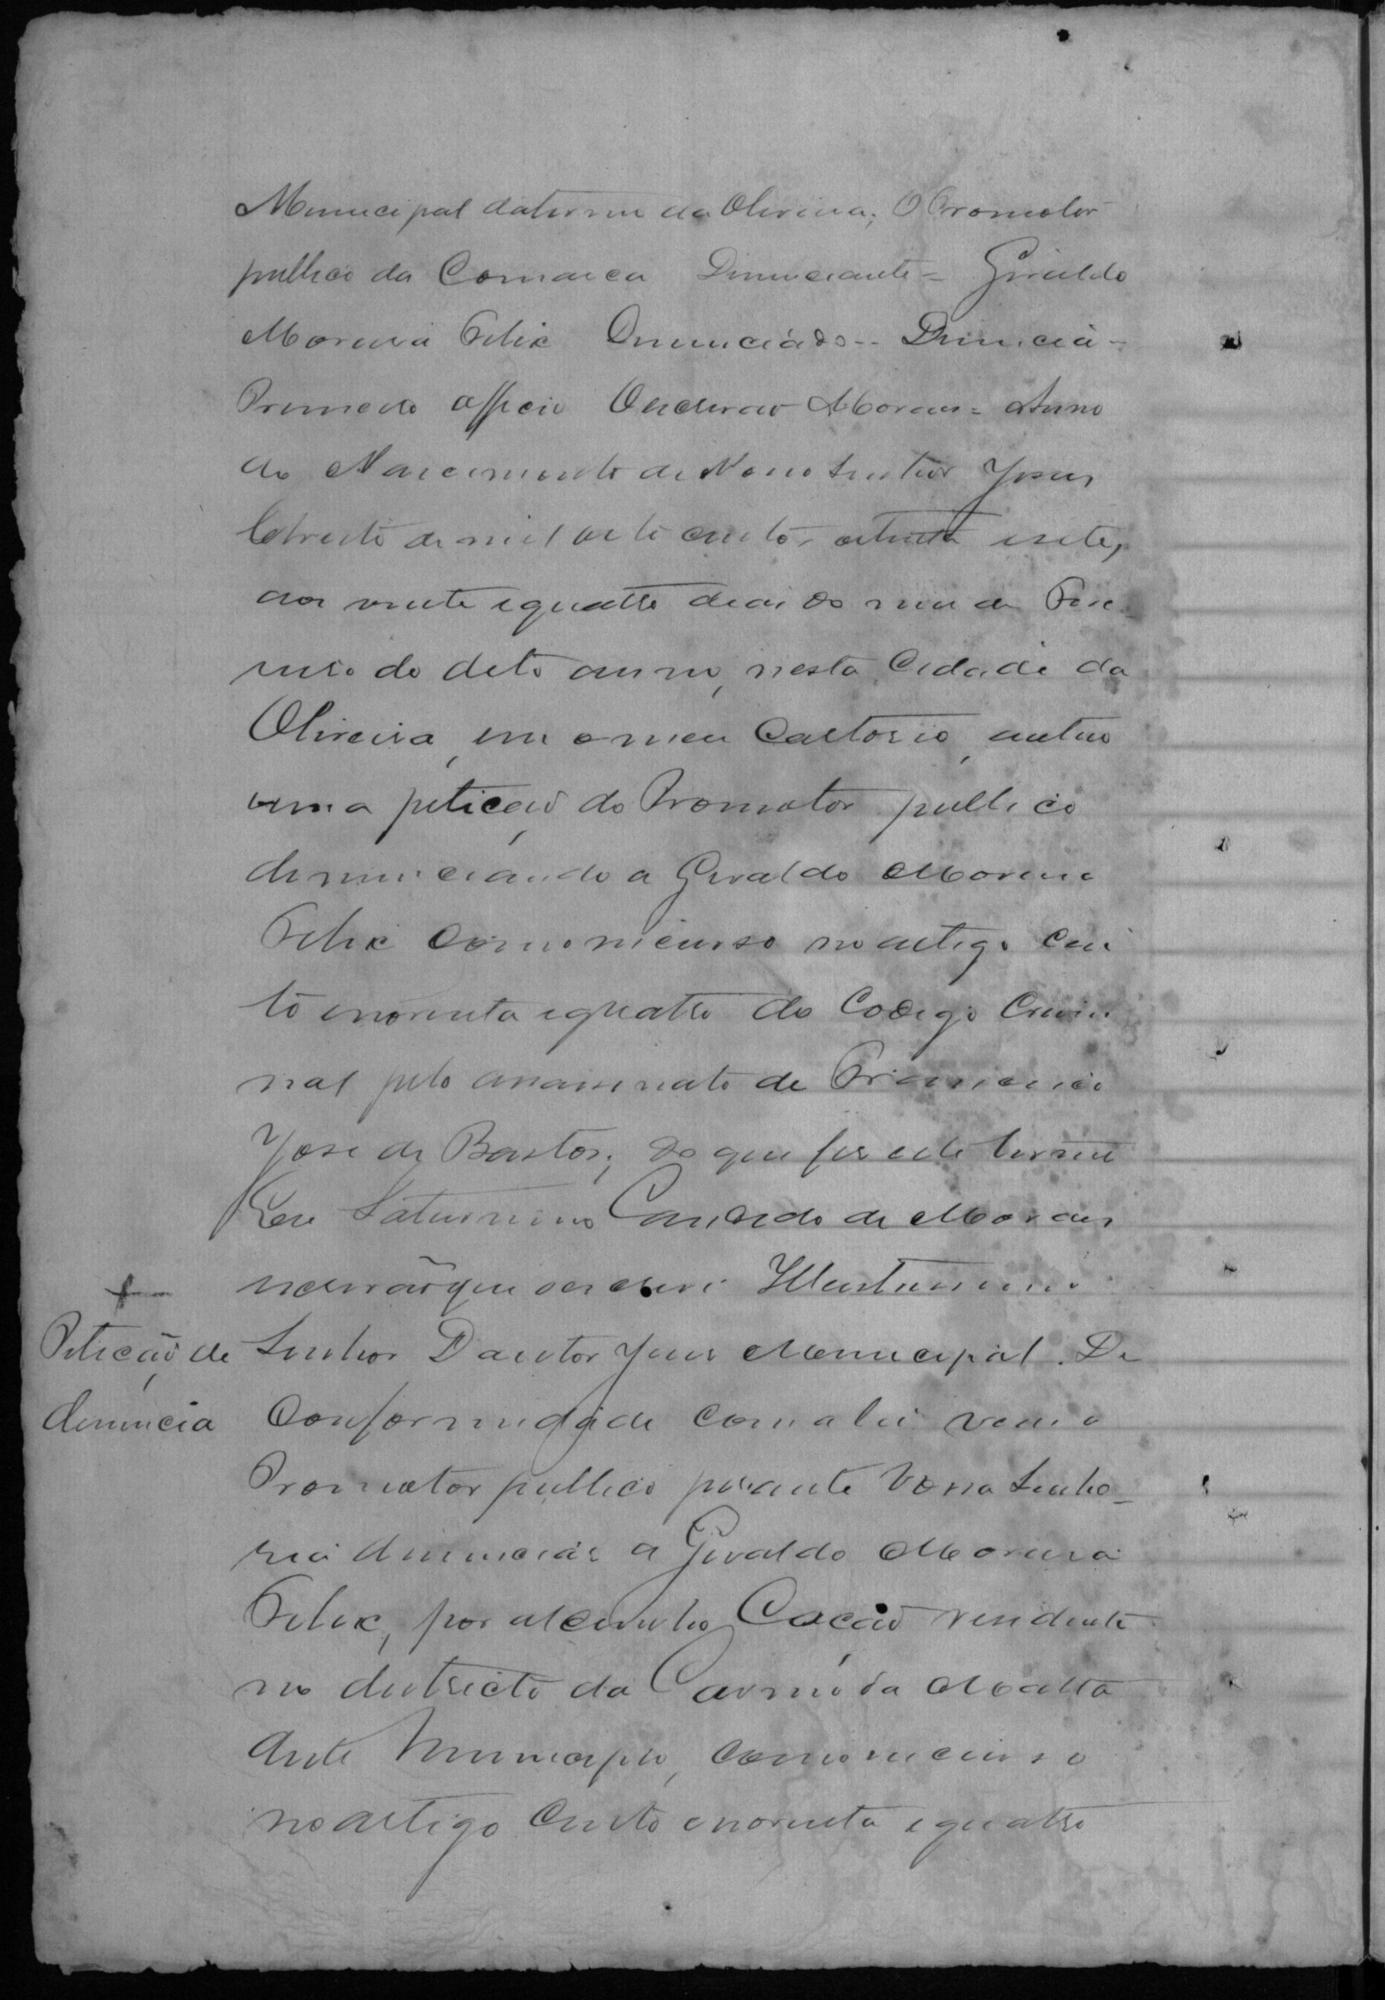 Municipal do termo da Oliveira; O Promotor
publico da Comarca Denunciante = Giraldo
Moreira Felix Denunciado -- Denuncia =
Primeiro officio Escrivão Moraes = Anno
do Nascimento de Nosso Senhor Jesus
Christo de mil oito centos oitenta e sete,
aos vinte e quatro dias do mes de
do dito anno, nesta Cidade da
Oliveira, em o meu Cartorio, autuo
uma petição do Promotor publico
denunciando a Geraldo Moreira
Felix como incurso no artigo cen
to e noventa e quatro do Codigo Crimi
nal pelo assassinato de
José de Bastos; do que fis este termo
Eu Saturnino Candido de Moraes
escrivão que o escrevi. Illustrissimo
Petição de
denuncia
Senhor Doutor Juis Municipal. De
conformidade com a lei vem o
Promotor publico perante Vossa Senho-
ria denunciar a Giraldo Moreira
Felix, por alcunha Cação residente
no districto do Carmo da Matta
deste Municipio, como incurso
no artigo cento e noventa e quatro